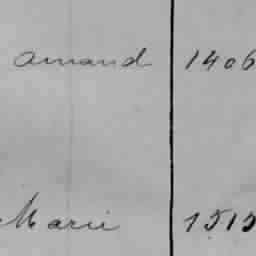 Amand 1406
Marie 1515